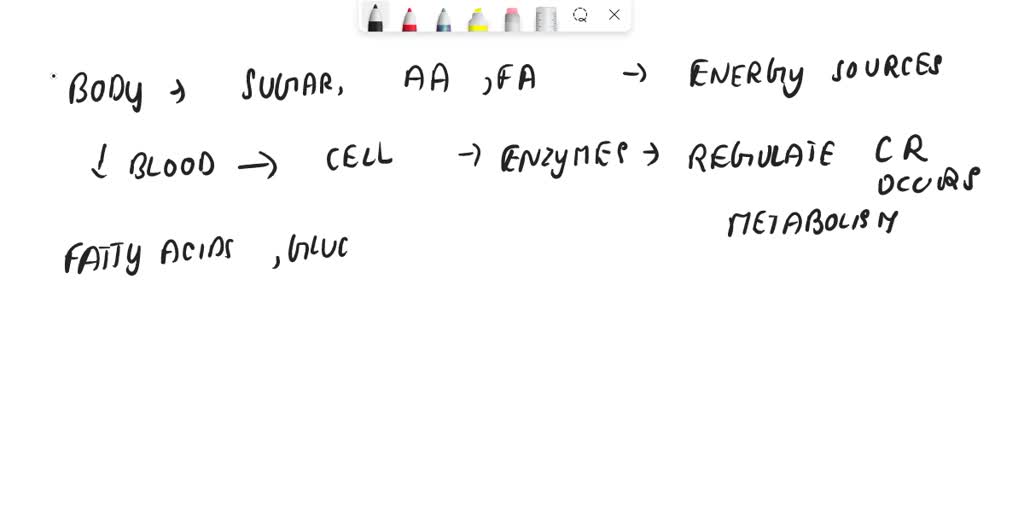 BODY → SUGAR, AA , FA → ENERGY SOURCES
↓ BLOOD → CELL → ENZYMES → REGULATE CR OCCURS
METABOLISM
FATTY ACIDS , GLUC